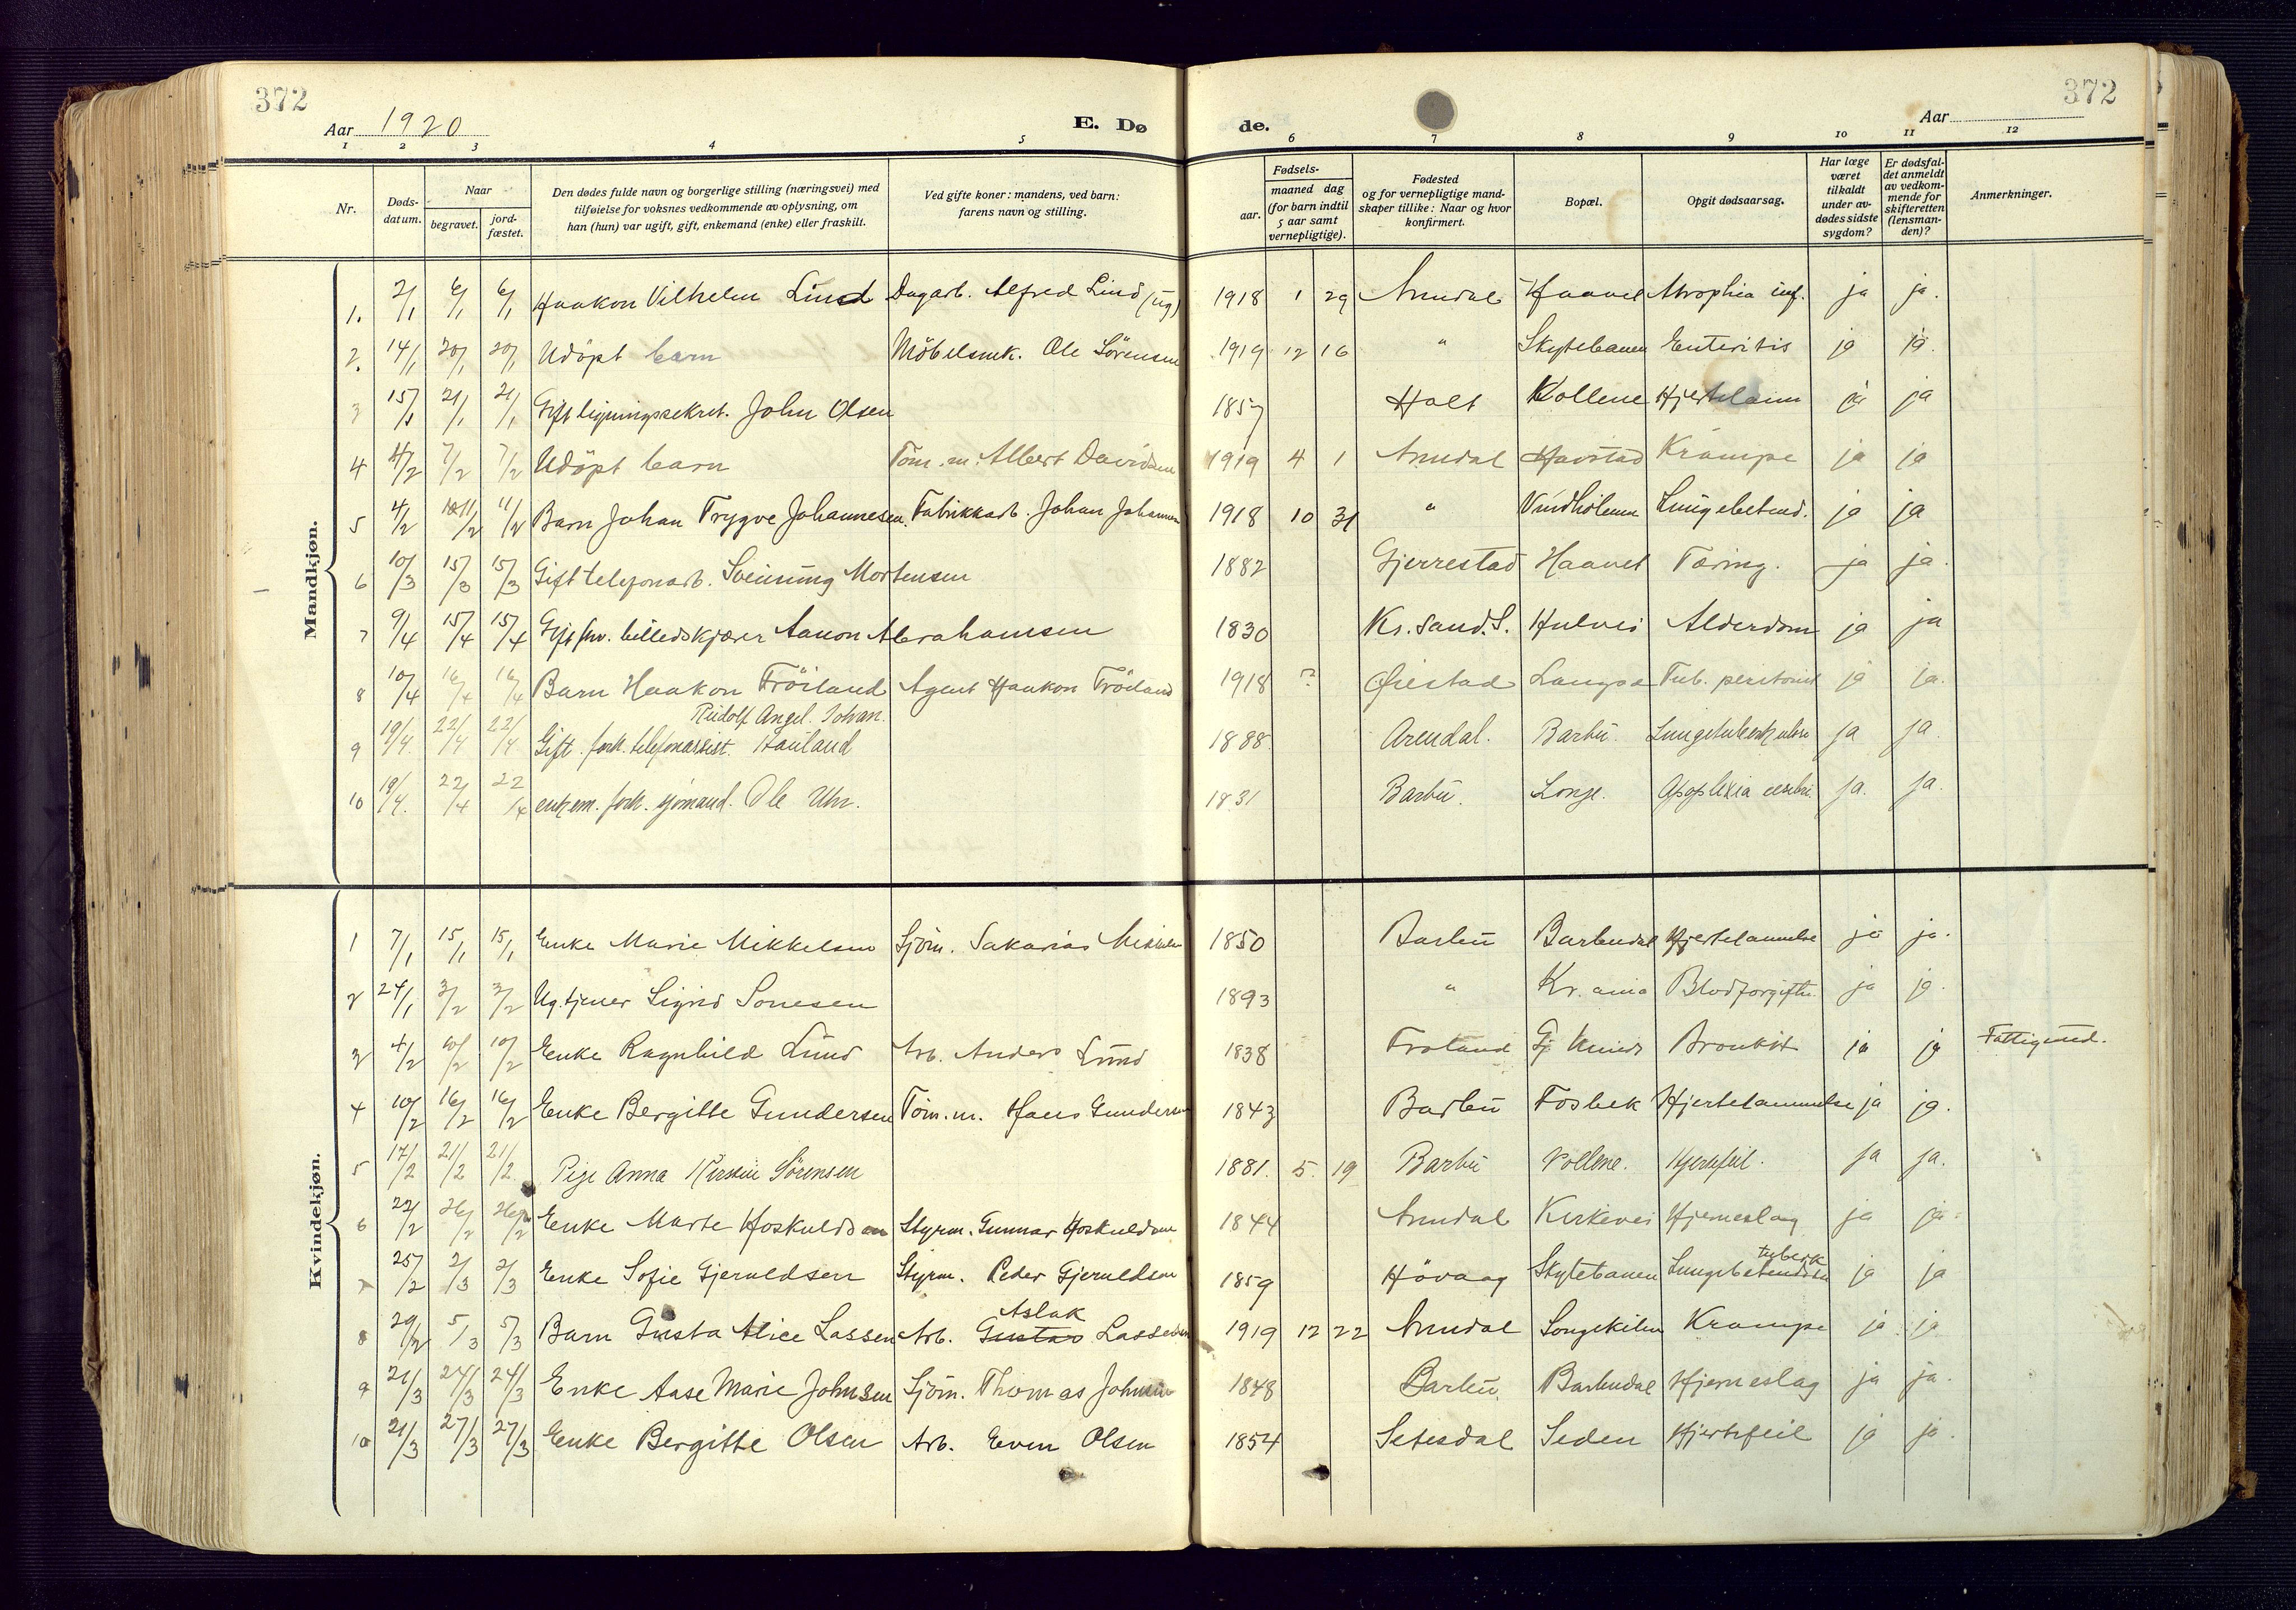 372
372
Aar 1920
E. Dø
de.
Aar
1 2 3 4 5 6 7 8 9 10 11 12
Nr.
Døds-
datum.
Naar
begravet.
jord-
fæstet.
Den dødes fulde navn og borgerlige stilling (næringsvei) med
tilføielse for voksnes vedkommende av oplysning, om
han (hun) var ugift, gift, enkemand (enke) eller fraskilt.
Ved gifte koner: mandens, ved barn:
farens navn og stilling.
Fødsels-
aar.
maaned dag
(for barn indtil
5 aar samt
vernepligtige).
Fødested
og for vernepligtige mand-
skaper tillike: Naar og hvor
konfirmert.
Bopæl.
Opgit dødsaarsag.
Har læge
været
tilkaldt
under av-
dødes sidste
sygdom?
Er dødsfal-
det anmeldt
av vedkom-
mende for
skifteretten
(lensman-
den)?
Anmerkninger.
Mandkjøn.
1. 2/1 6/1 6/1 Haakon Vilhelm Lind Dagarb. Alfred Lind (ug) 1918 1 29 Arendal Haavet Atrophia inf. ja ja.
2. 14/1 20/1 20/1 Udöpt barn Möbelsnk. Ole Sörensen 1919 12 16 " Skytebanen Enteritis ja ja.
3 15/1 21/1 21/1 Gift ligningssekret. John Olsen 1857 Holt Kollene Hjertelam ja ja
4 4/2 7/2 7/2 Udöpt barn Töm.m. Albert Davidsen 1919 4 1 Arendal Havstad Krampe ja ja
5 4/2 11/2 11/2 Barn Johan Trygve Johannesen. Fabrikkarb. Johan Johannesen 1918 10 31 " Vindholmen Lungebetend. ja ja
6 10/3 15/3 15/3 Gift telefonarb. Sveinung Mortensen 1882 Gjerrestad Haavet Tæring. ja ja.
7 9/4 15/4 15/4 Gift fhv. billedskjærer Aanon Abrahamsen 1830 Kr.sand.S. Hulvei Alderdom ja ja
8 10/4 16/4 16/4 Barn Haakon Tröiland Agent Haakon Tröiland 1918 ? Øiestad Langsæ Tub. peritonit ja ja.
Rudolf Angel. Johan.
9 19/4. 22/4 22/4 Gift. forh. telefonassist. Hauland 1888. Arendal. Barbu. Lungetuberkulose ja ja.
10 19/4. 22/4 22/4 enkem. forh. sjömand. Ole Uhr. 1831 Barbu. Longe. Apoplexia cerebri. ja. ja.
Kvindekjøn.
1 7/1 15/1 15/1 Enke Marie Mikkelsen Sjöm. Sakarias Mikkelsen 1850 Barbu Barbudal Hjertelammelse ja ja.
2 24/1 3/2 3/2 Ug. tjener Sigrid Sonesen 1893 " Kr.ania Blodforgiftn. ja ja.
3 4/2 10/2 10/2 Enke Ragnhild Lund Arb. Anders Lund 1838 Froland Bronkit ja ja Fattigund.
4 10/2 16/2 16/2 Enke Bergitte Gundersen Töm.m. Hans Gundersen 1843 Barbu Fosbek Hjertelammelse ja ja.
5 17/2 21/2 21/2. Pige Anna Kirstine Sörensen 1881. 5. 19 Barbu Kollene. Hjertefeil. ja ja.
6 22/2 26/2 26/2 Enke Marte Hoskuldsen Styrm. Gunnar Hoskuldsen 1844 Arendal Kirkevei Hjerneslag ja ja.
7 25/2 2/3 2/3 Enke Sofie Gjeruldsen Styrm. Peder Gjeruldsen 1859 Hövaag Skytebanen Lungebetendelse tuberk. ja ja
Aslak
8 29/2 5/3 5/3 Barn Gusta Alice Lassen Arb. Gustav Lassesen 1919 12 22 Arendal Songekilen Krampe ja ja
9 21/3 24/3 24/3 Enke Aase Marie Johnsen Sjöm. Thomas Johnsen 1848 Barbu Barbudal Hjerneslag ja ja.
10 21/3 27/3 27/3 Enke Bergitte Olsen Arb. Even Olsen 1854 Setesdal Seden Hjertefeil ja ja.